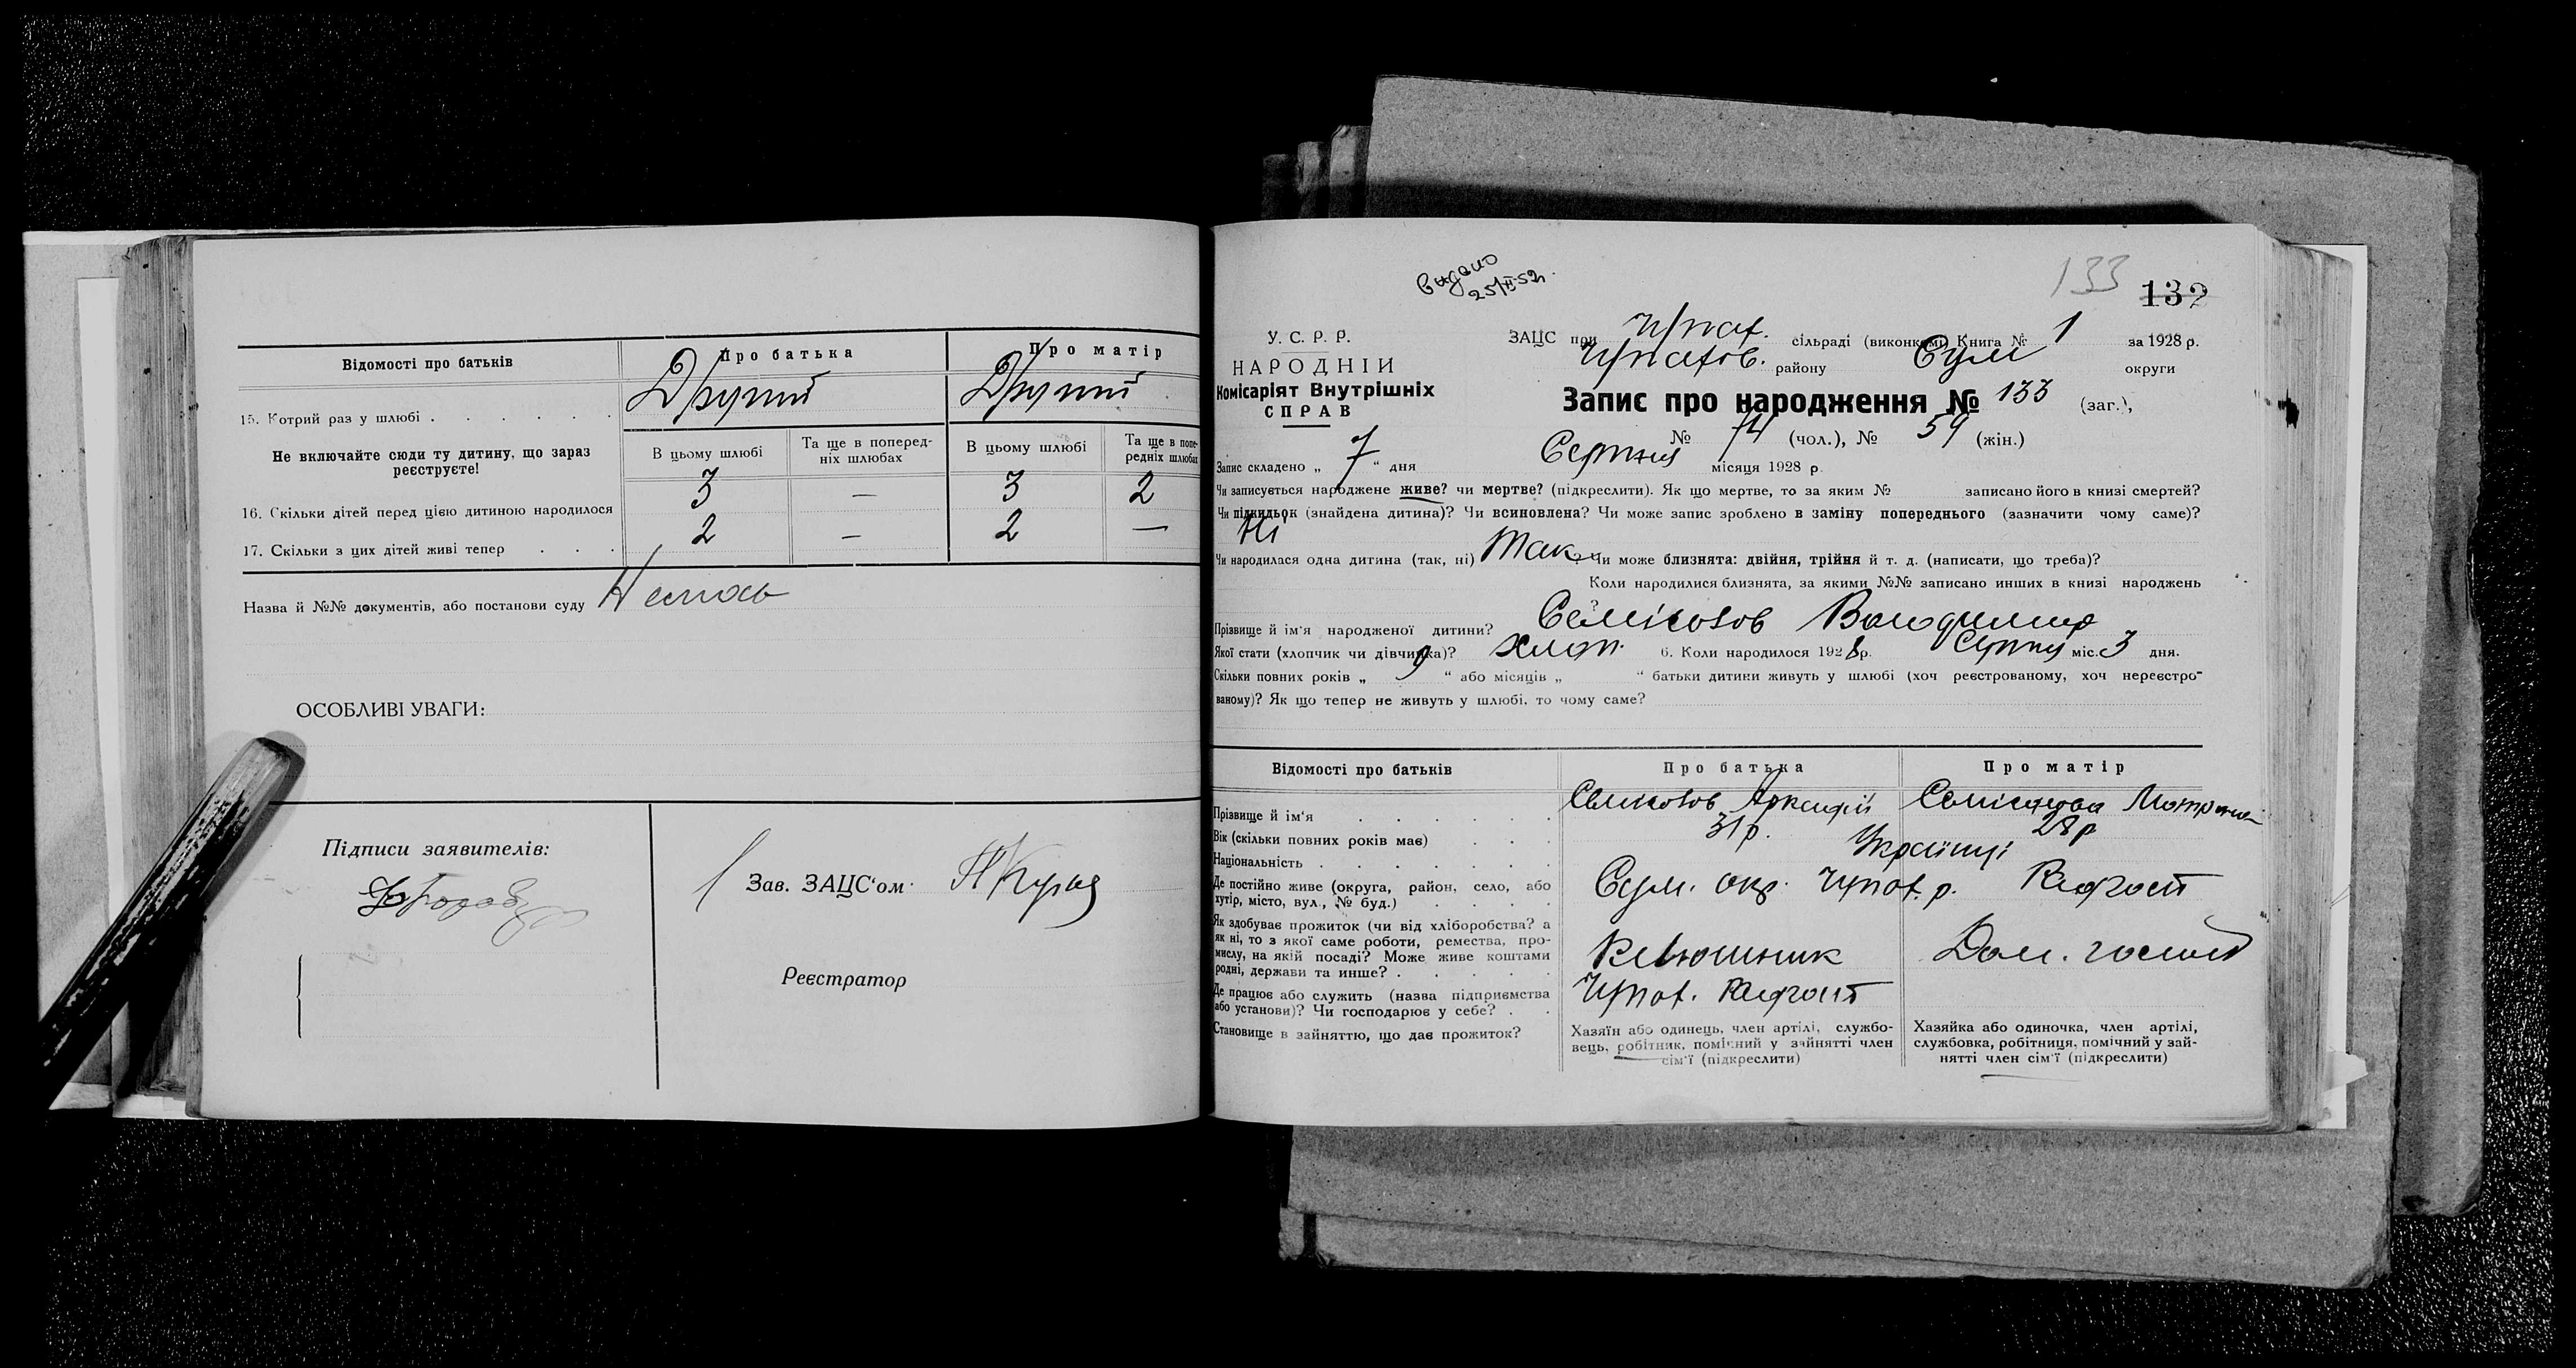 Відомості про батьків
Про батька
Про матір
15. Котрий раз у шлюбі
Другий
Другий
Не включайте сюди ту дитину, що зараз
реєструєте!
В цьому шлюбі
Та ще в поперед-
ніх шлюбах
В цьому шлюбі
Та ще в попе-
редніх шлюбах
16. Скільки дітей перед цією дитиною народилося
3
—
3
2
17. Скільки з цих дітей живі тепер
2
—
2
—
Назва й №№ документів, або постанови суду
ОСОБЛИВІ УВАГИ:
Підписи заявителів:
Зав. ЗАЦС'ом
Реєстратор
видано
133
132
У. С. Р. Р.
НАРОДНІЙ
Комісаріят Внутрішніх
СПРАВ
ЗАЦС при сільраді (виконкомі) Книга № 1 за 1928 р.
району Сум округи
Запис про народження № 133 (заг.),
№ 74 (чол.), № 59 (жін.)
Запис складено „ 7 “ дня Серпня місяця 1928 р.
Чи записується народжене живе? чи мертве? (підкреслити). Як що мертве, то за яким № записано його в книзі смертей?
Чи підкидьок (знайдена дитина)? Чи всиновлена? Чи може запис зроблено в заміну попереднього (зазначити чому саме)?
Ні
Чи народилася одна дитина (так, ні) Так Чи може близнята: двійня, трійня й т. д. (написати, що треба)?
Коли народилися близнята, за якими №№ записано инших в книзі народжень
?
Прізвище й ім'я народженої дитини? Володимир
Якої стати (хлопчик чи дівчинка)? хлоп. 6. Коли народилося 1928 р. Серпня міс. 3 дня.
Скільки повних років „ 9 “ або місяців „ “ батьки дитини живуть у шлюбі (хоч реєстрованому, хоч нереєстро-
ваному)? Як що тепер не живуть у шлюбі, то чому саме?
Відомості про батьків
Про батька
Про матір
Прізвище й ім'я
Вік (скільки повних років має)
31 р.
28 р
Національність
Українці
Де постійно живе (округа, район, село, або
хутір, місто, вул., № буд.)
Сум. окр.
Як здобуває прожиток (чи від хліборобства? а
як ні, то з якої саме роботи, ремества, про-
мислу, на якій посаді? Може живе коштами
родні, держави та инше?
Дом. господ
Де працює або служить (назва підприємства
або установи)? Чи господарює у себе?
Становище в зайняттю, що дає прожиток?
Хазяїн або одинець, член артілі, службо-
вець, робітник, помічний у зайнятті член
сім'ї (підкреслити)
Хазяйка або одиночка, член артілі,
службовка, робітниця, помічний у зай-
нятті член сім'ї (підкреслити)